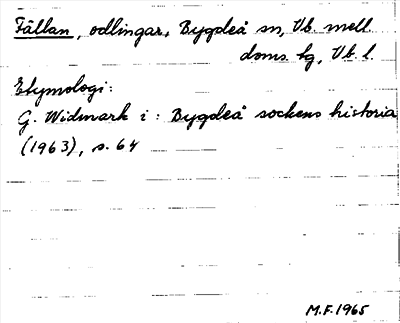 Fällan, odlingar, Bygdeå sn, Vb. mell.
doms. hg, Vb. l.
Etymologi:
G. Widmark i: Bygdeå sockens historia
(1963), s. 64
M.F. 1965